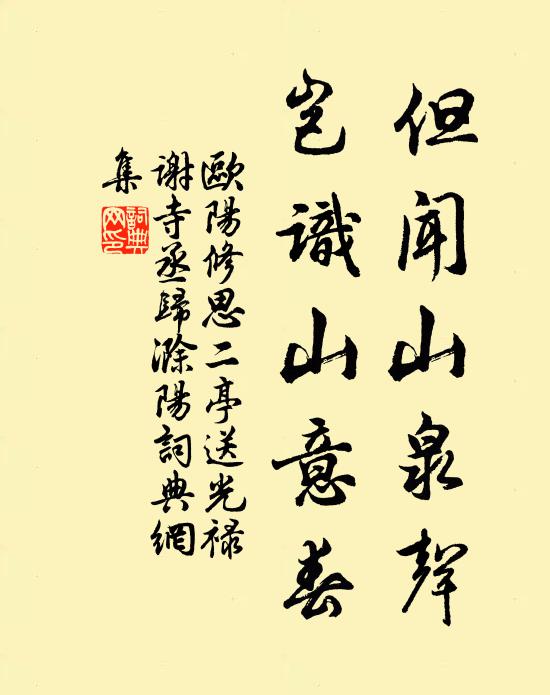 但闻山泉聲
岂識山意春
歐陽修思二亭送光禄
謝寺丞歸滁陽詞典網
集
詞典網印